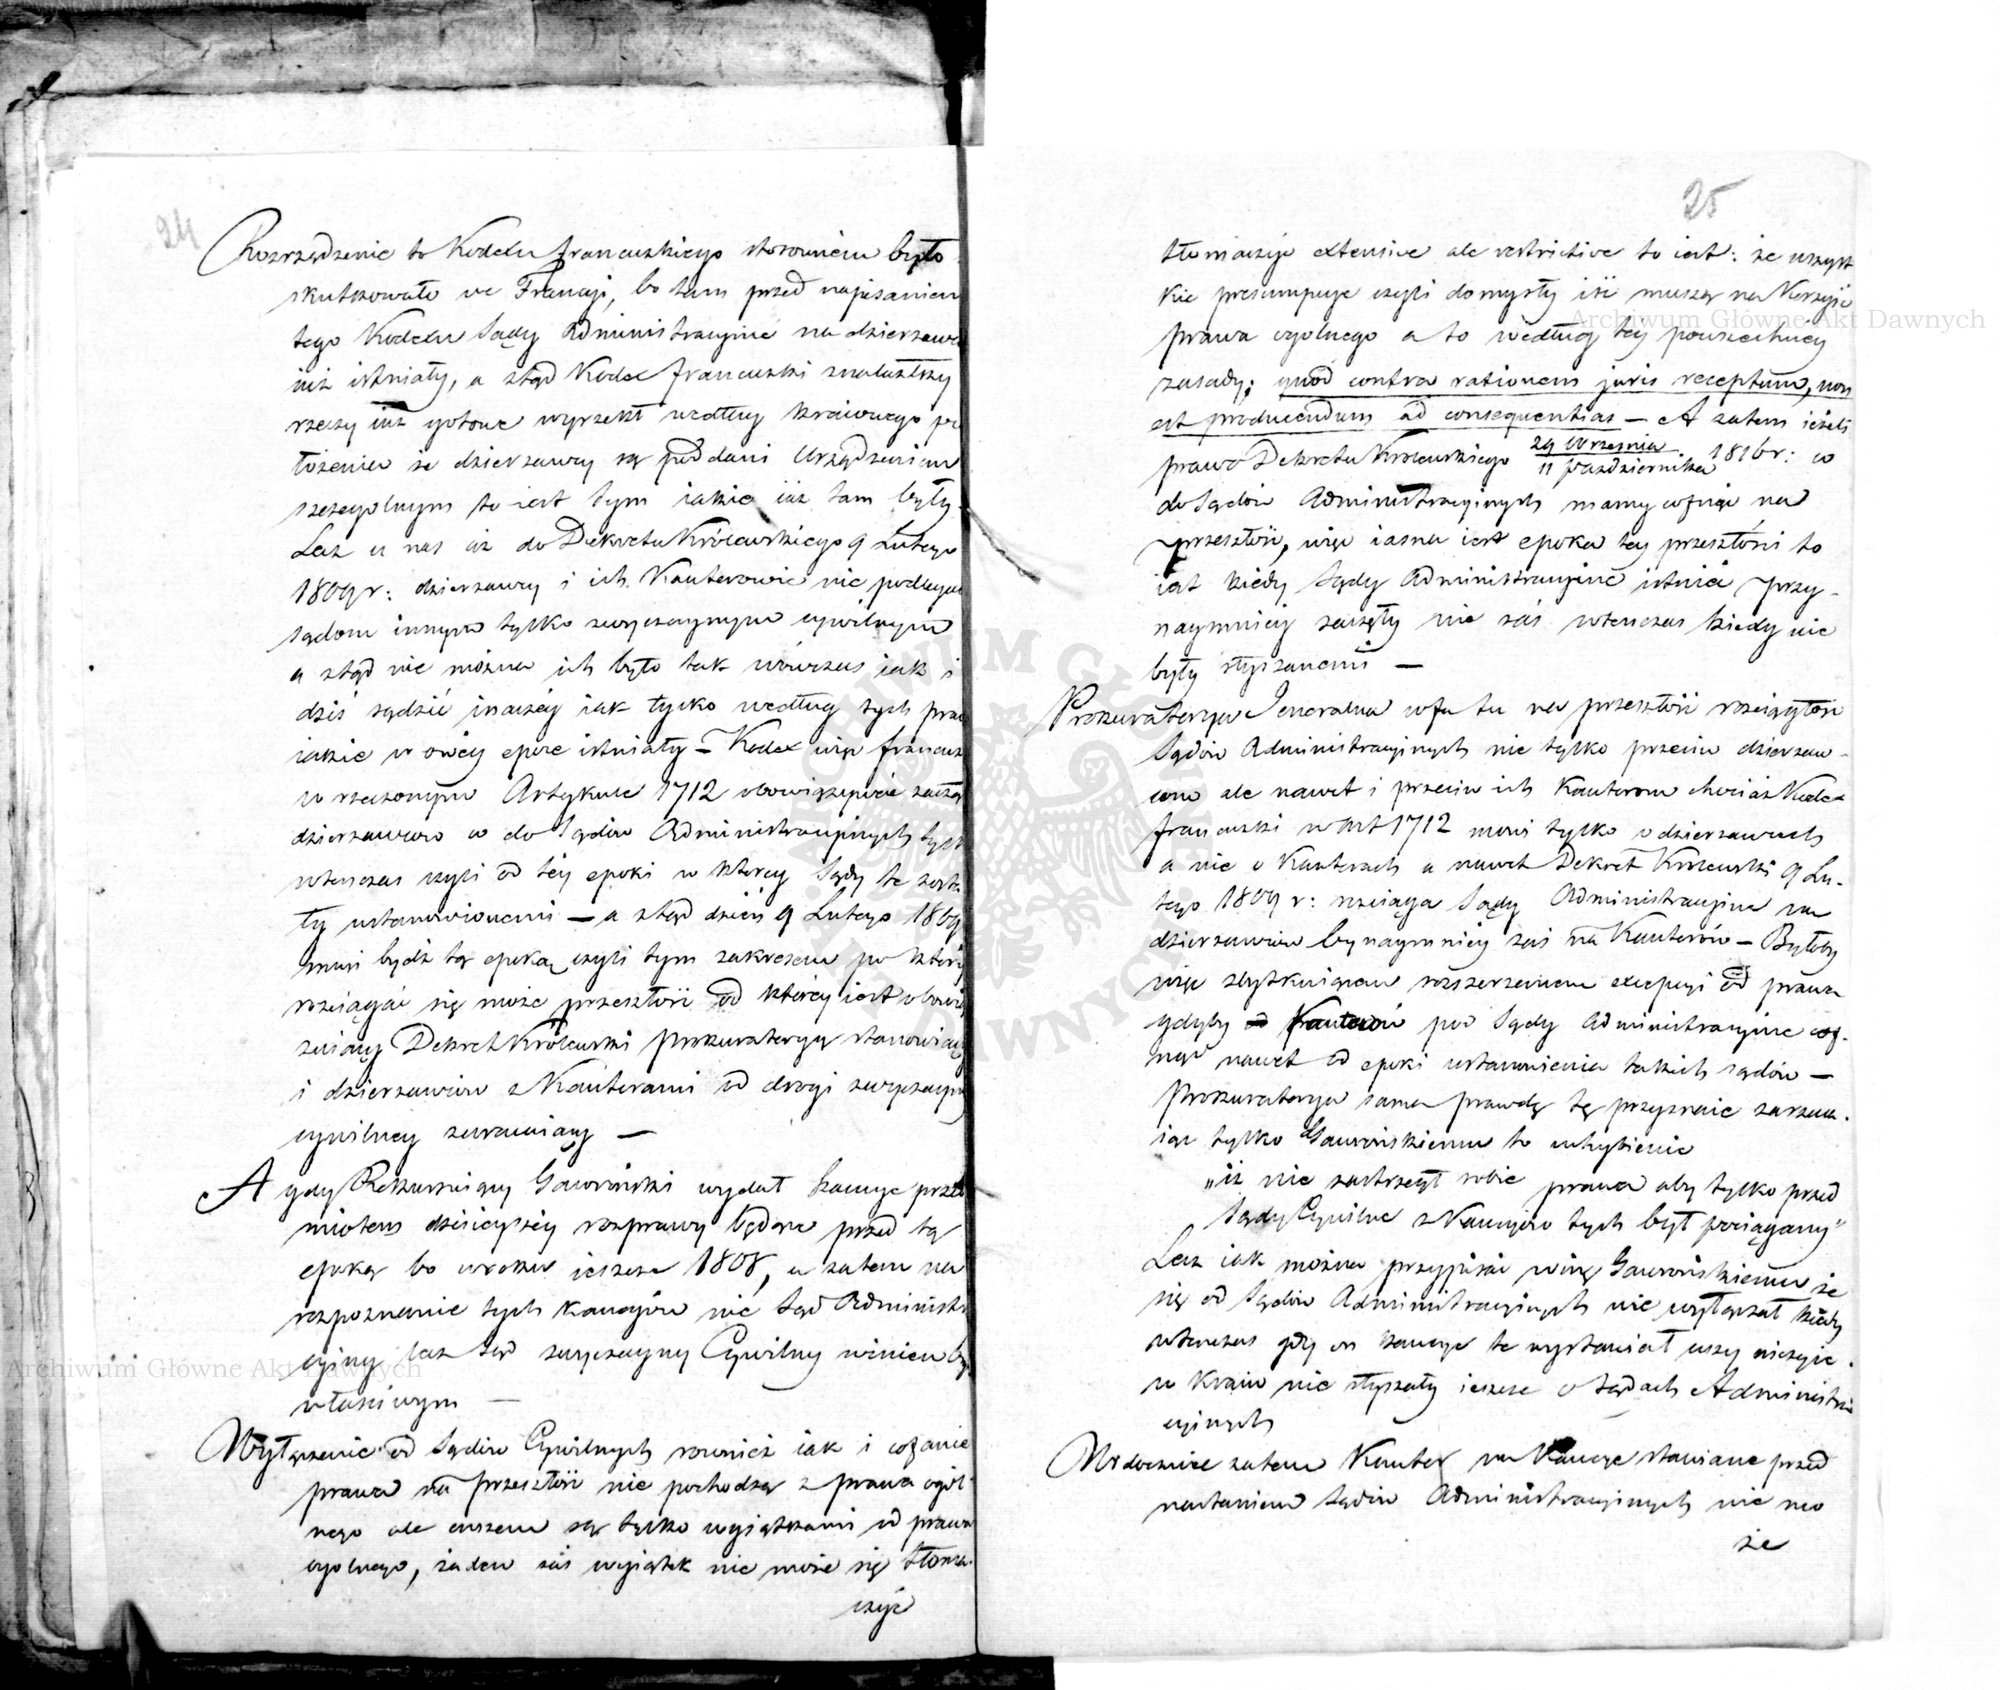 24
Rozrządzenie to Kodexu francuskiego stosownem było
skutkowało we Francyi, bo tam przed napisaniem
tego Kodexu Sądy Administracyine na dzierzawc
iuż istniały, a ztąd Kodex francuski znalazłszy
rzeczy iuż gotowe wyrzekł według kraiowego po
łożenia że dzierzawcy są poddani Urządzeniom
szczegolnym to iest tym iakie iuż tam były.
Lecz u nas aż do Dekretu Królewskiego 9 Lutego
1809 r: dzierzawcy i ich Kauterowie nie podlegali
sądom innym tylko zwyczaynym cywilnym
a ztąd nie można ich było tak wówczas iak i
dziś sądzić inaczey iak tylko według tych praw
iakie w owey epoce istniały – Kodex więc francusk
w rzeczonym Artykule 1712 obowiązywać zaczął
dzierzawców co do Sądów Administracyinych tylk
wtenczas czyli od tey epoki w ktorey Sądy te zosta
ły ustanowionemi – a ztąd dzień 9 Lutego 1809
musi bydź tą epoką czyli tym zakresem po który
rozciągać się może przeszłość od ktorey iest obowią
zuiący Dekret Królewski Prokuratoryą stanowiący
i dzierzawców z Kauterami od drogi zwyczayney
cywilney zwracaiący –
A gdy Rekurruiący Gaworiński wydał kaucye przed
miotem dzisieyszey rozprawy będące przed tą
epoką bo w roku ieszcze 1808, a zatem na
rozpoznanie tych kaucyów nie Sąd Administra
cyiny lecz Sąd zwyczayny Cywilny winien by
właściwym –
Wyłączenie od Sądów Cywilnych rownież iak i cofanie
prawa na przeszłość nie pochodzą z prawa ogól
nego ale owszem są tylko wyiątkami od prawa
ogolnego, żaden zaś wyiątek nie może się tłoma-
czyć
25
tłomaczyć extensive ale restrictive to iest: że wszyst
kie presumpcye czyli domysły iść muszą na korzyść
prawa ogolnego a to według tey powszechney
zasady: quod contra rationem juris receptum, non
est producendum ad consequentias – A zatem ieżeli
prawo Dekretu Krolewskiego 29 Września / 11 Października 1816 r: co
do Sądów Administracyinych mamy cofnąć na
przeszłość, więc iasna iest epoka tey przeszłości to
iest kiedy Sądy Administracyine istnieć przy-
naymniey zaczęły nie zaś wtenczas kiedy nie
były słyszanemi –
Prokuratorya Jeneralna cofa tu na przeszłość rozciągłość
Sądów Administracyinych nie tylko przeciw dzierzaw-
com ale nawet i przeciw ich Kauterom chociaż Kodex
francuski w Art 1712 mowi tylko o dzierzawcach
a nie o Kauterach a nawet Dekret Krolewski 9 Lu-
tego 1809 r: rozciąga Sądy Administracyine na
dzierzawców bynaymniey zaś na Kauterów – Byłoby
więc rozszerzeniem excepcyi od prawa
gdyby Kauterów pod Sądy Administracyine cof-
nąć nawet od epoki ustanowienia takich sądów –
Prokuratorya sama prawdę tę przyznaie zarzuca-
iąc tylko Gaworińskiemu to uchybienie
„iż nie zastrzegł sobie prawa aby tylko przed
Sądy Cywilne z Kaucyów tych był pociągany”
Lecz iak można przypisać winę Gaworińskiemu że
się od Sądów Administracyinych nie wyłączał kiedy
wtenczas gdy on kaucye te wystawiał uszy niczyie
w Kraiu nie słyszały ieszcze o Sądach Administra
cyinych
Wrdoczenie zatem Kauter na Kaucye stawiane przed
nastaniem Sądów Administracyinych nie mo
że